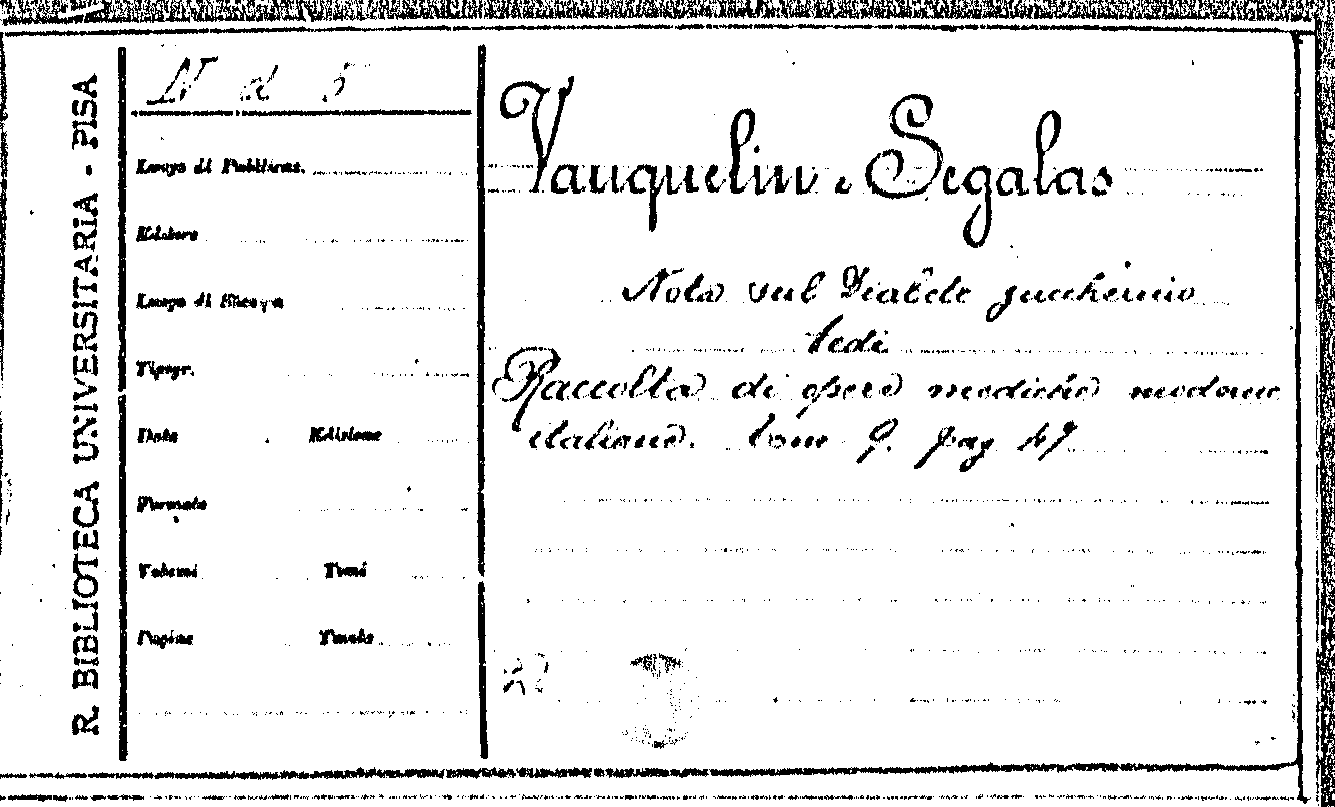 R. BIBLIOTECA UNIVERSITARIA - PISA
N d 5
Luogo di Pubblicaz.
Editore
Luogo di Stampa
Tipogr.
Data Edizione
Formato
Volumi Tomi
Pagine Tavole
Vauquelin e Segalas
Nota sul Diabete zuccherino
Vedi
Raccolta di opere mediche moderne
italiane. Tom 9. pag 47